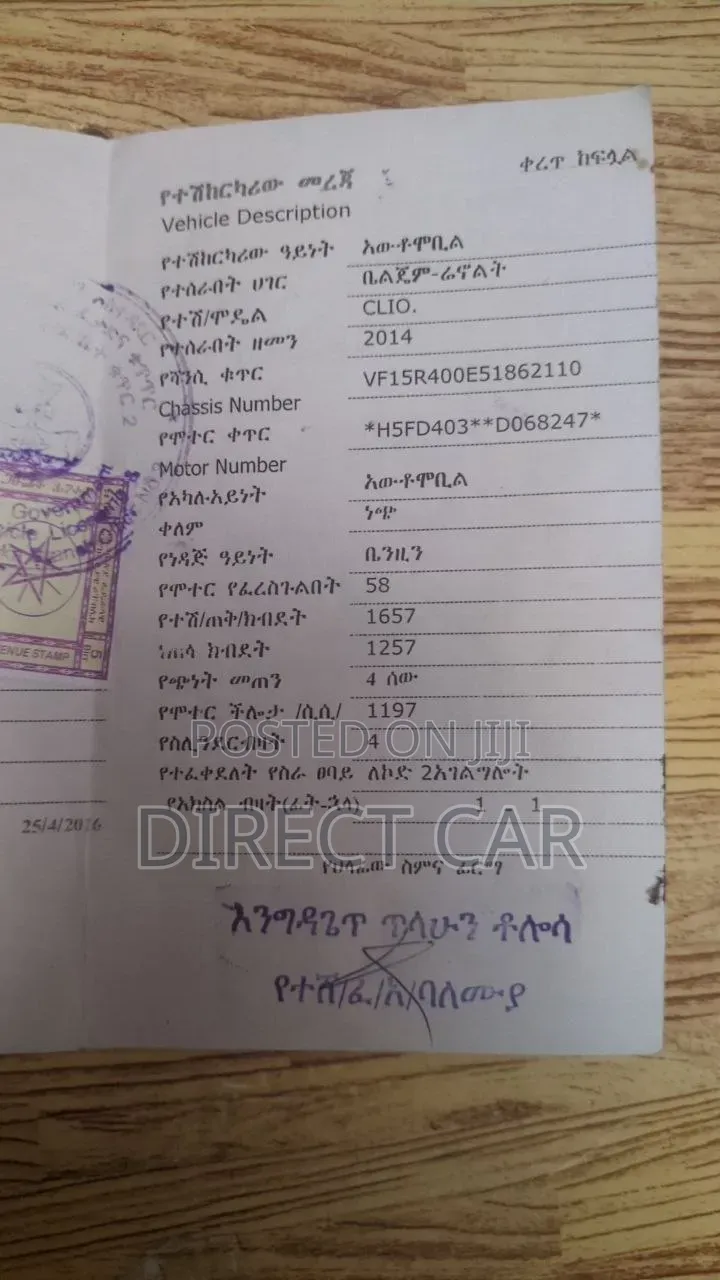 ቀረጥ ከፍሏል
የተሽከርካሪው መረጃ
Vehicle Description
የተሽከርካሪው ዓይነት አውቶሞቢል
የተሰራበት ሀገር ቤልጄም-ሬኖልት
የተሽ/ሞዴል CLIO.
የተሰራበት ዘመን 2014
የሻንሲ ቁጥር VF15R400E51862110
Chassis Number
የሞተር ቀጥር *H5FD403**D068247*
Motor Number
የአካሉአይነት አውቶሞቢል
ቀለም ነጭ
የነዳጅ ዓይነት ቤንዚን
የሞተር የፈረስጉልበት 58
የተሽ/ጠቅ/ክብደት 1657
ነጠላ ክብደት 1257
የጭነት መጠን 4 ሰው
የሞተር ችሎታ /ሲሲ/ 1197
የስሊንደርብዛት 4
POSTED ON JIJI
የተፈቀደለት የስራ ፀባይ ለኮድ 2አገልግሎት
የአክስል ብዛት(ፊት-ኋላ) 1 1
DIRECT CAR
25/4/2016
የሀላፊው ስምና ፊርማ
እንግዳጌጥ ጥላሁን ቶሎሳ
የተሽ/ፈ/አ/ባለሙያ
ENUE STAMP